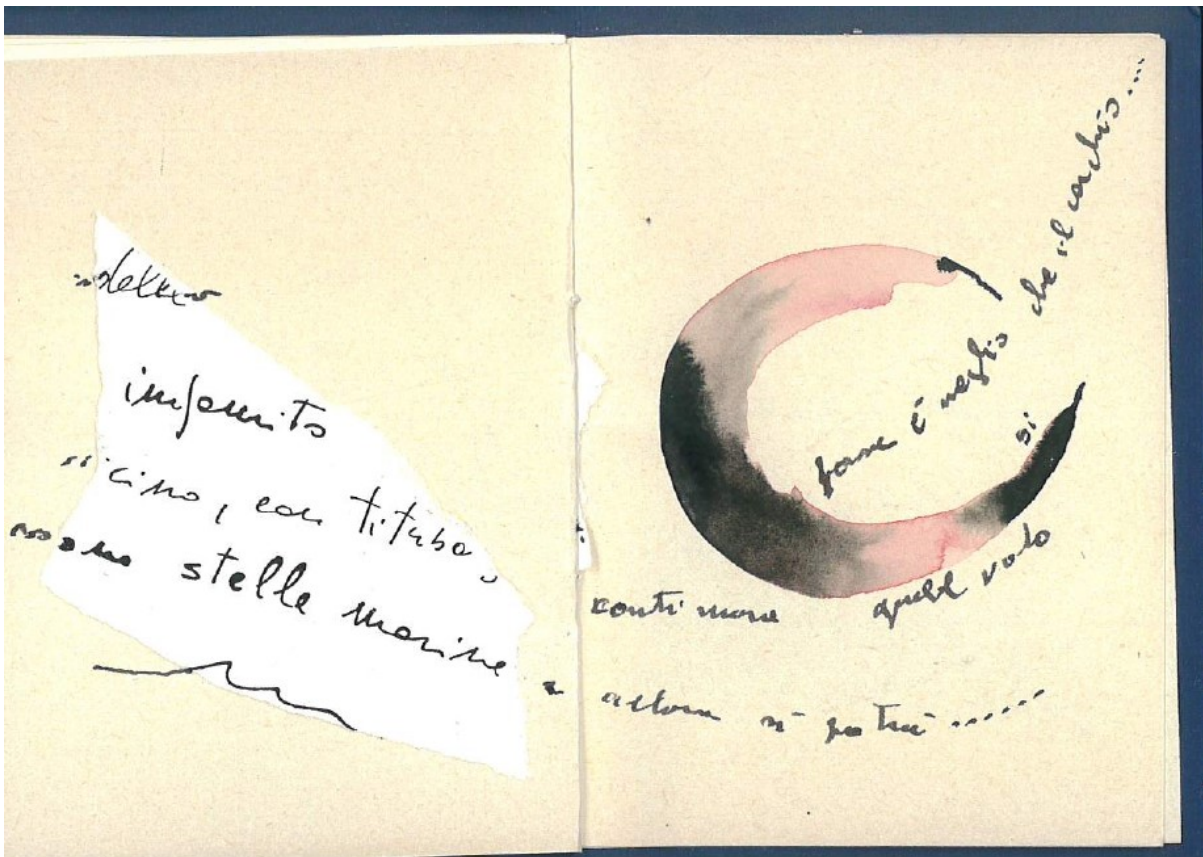 infinito
cino, con tituba
stelle marine
forse è meglio che il cerchio....
si
continua
quel volo
allora si potrà ......